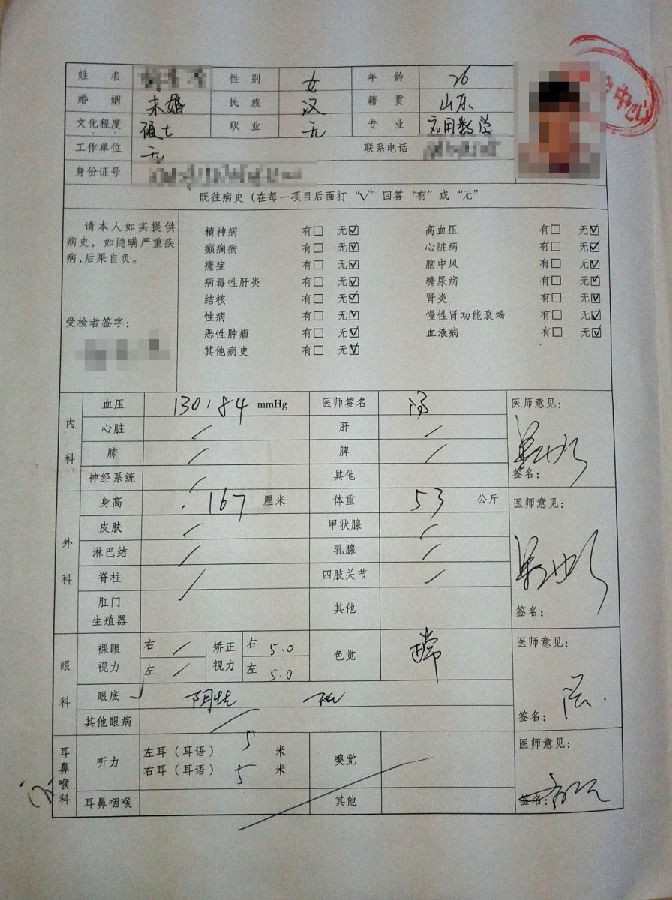 姓 名 性 别 女 年 龄 26
婚 姻 未婚 民 族 汉 籍 贯 山东
文化程度 硕士 职 业 无 专 业 应用数学
工作单位 无 联系电话
身份证号
既往病史(在每一项目后面打“√”回答“有”或“无”
请本人如实提供病史，如隐瞒严重疾病,后果自负。
受检者签字:
精神病 有□ 无☑ 高血压 有□ 无☑
癫痫病 有□ 无☑ 心脏病 有□ 无☑
癔症 有□ 无☑ 脑中风 有□ 无☑
病毒性肝炎 有□ 无☑ 糖尿病 有□ 无☑
结核 有□ 无☑ 肾炎 有□ 无☑
性病 有□ 无☑ 慢性肾功能衰竭 有□ 无☑
恶性肿瘤 有□ 无☑ 血液病 有□ 无☑
其他病史 有□ 无☑
内科
血压 130/84 mmHg 医师签名 医师意见:
心脏 / 肝 /
肺 / 脾 /
神经系统 / 其他 签名:
外科
身高 167 厘米 体重 53 公斤 医师意见:
皮肤 / 甲状腺 /
淋巴结 / 乳腺 /
脊柱 / 四肢关节 /
肛门 生殖器 其他 签名:
眼科
裸眼视力 右 / 左 / 矫正视力 右 5.0 左 5.0 色觉 正常 医师意见:
眼底
其他眼病 签名:
耳鼻喉科
听力 左耳(耳语) 5 米 嗅觉 医师意见:
右耳(耳语) 5 米
耳鼻咽喉 其他 签字:
中心